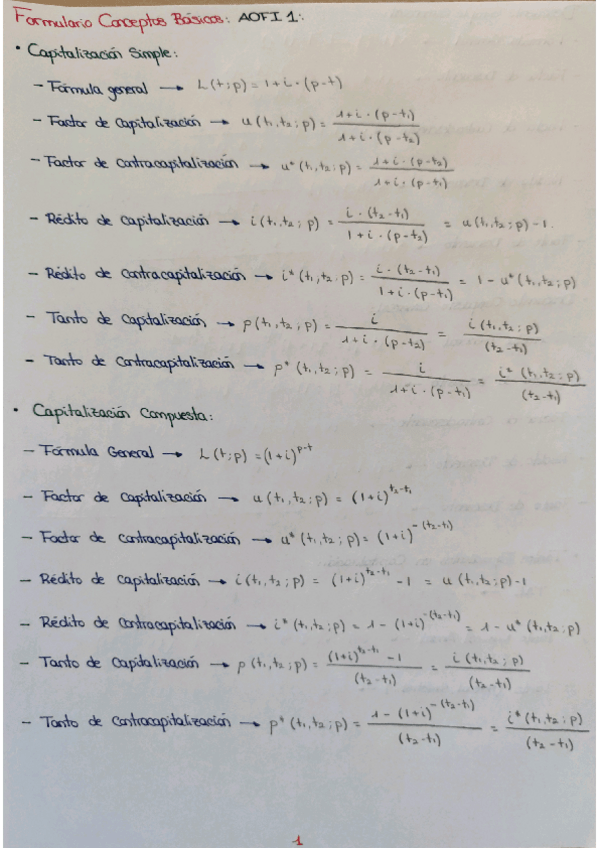 Formulario Conceptos Básicos: AOFI 1:
• Capitalización Simple:
– Fórmula general → L(t;p) = 1+i·(p-t)
– Factor de Capitalización → u(t₁,t₂;p) = 1+i·(p-t₁) / 1+i·(p-t₂)
– Factor de Contracapitalización → u*(t₁,t₂;p) = 1+i·(p-t₂) / 1+i·(p-t₁)
– Rédito de Capitalización → i(t₁,t₂;p) = i·(t₂-t₁) / 1+i·(p-t₂) = u(t₁,t₂;p)-1.
– Rédito de Contracapitalización → i*(t₁,t₂;p) = i·(t₂-t₁) / 1+i·(p-t₁) = 1-u*(t₁,t₂;p)
– Tanto de Capitalización → ρ(t₁,t₂;p) = i / 1+i·(p-t₂) = i(t₁,t₂;p) / (t₂-t₁)
– Tanto de Contracapitalización → ρ*(t₁,t₂;p) = i / 1+i·(p-t₁) = i*(t₁,t₂;p) / (t₂-t₁)
• Capitalización Compuesta:
– Fórmula General → L(t;p) = (1+i)^(p-t)
– Factor de Capitalización → u(t₁,t₂;p) = (1+i)^(t₂-t₁)
– Factor de Contracapitalización → u*(t₁,t₂;p) = (1+i)^-(t₂-t₁)
– Rédito de Capitalización → i(t₁,t₂;p) = (1+i)^(t₂-t₁) -1 = u(t₁,t₂;p)-1
– Rédito de Contracapitalización → i*(t₁,t₂;p) = 1-(1+i)^-(t₂-t₁) = 1-u*(t₁,t₂;p)
– Tanto de Capitalización → ρ(t₁,t₂;p) = (1+i)^(t₂-t₁) -1 / (t₂-t₁) = i(t₁,t₂;p) / (t₂-t₁)
– Tanto de Contracapitalización → ρ*(t₁,t₂;p) = 1-(1+i)^-(t₂-t₁) / (t₂-t₁) = i*(t₁,t₂;p) / (t₂-t₁)
1